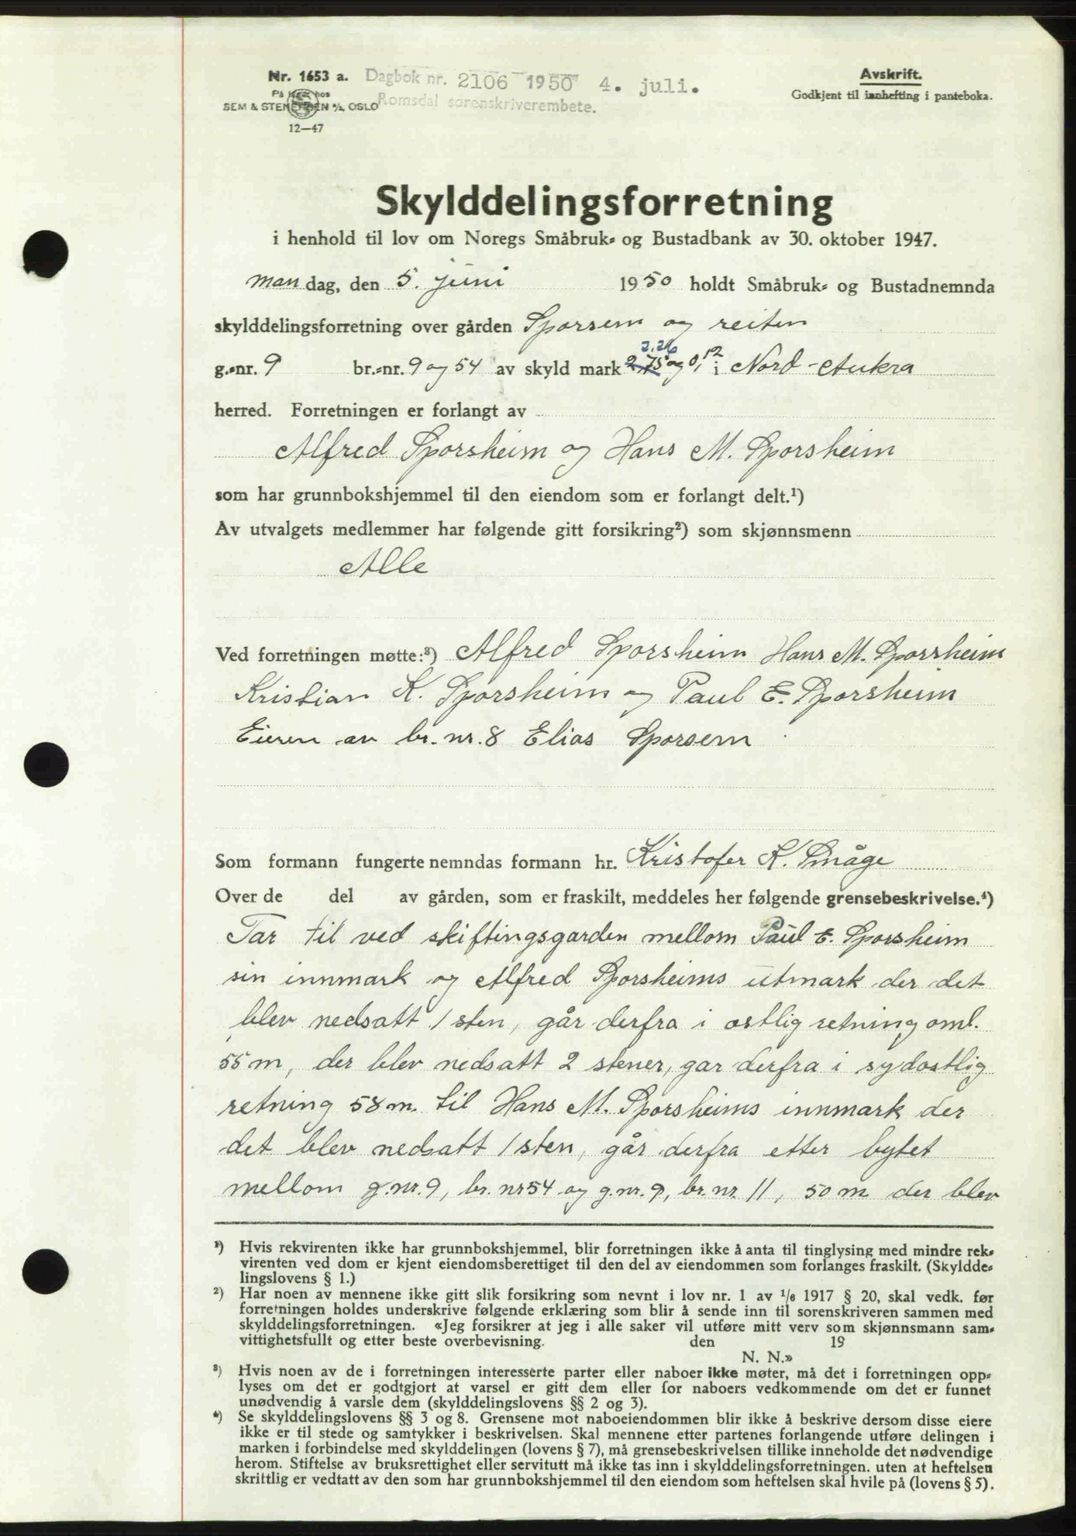 Nr. 1653 a. Dagbok nr. 2106 1950 4. juli.
Romsdal sorenskriverembete.
På lager hos
SEM & STENERSEN A/S, OSLO
12—47
Avskrift.
Godkjent til innhefting i panteboka.
Skylddelingsforretning
i henhold til lov om Noregs Småbruk- og Bustadbank av 30. oktober 1947.
mandag, den 5. juni 1950 holdt Småbruk- og Bustadnemnda
skylddelingsforretning over gården Sporsem og reiten
g.-nr. 9 br.-nr. 9 og 54 av skyld mark 2,75 2.26 og 0,12 i Nord-Aukra
herred. Forretningen er forlangt av
Alfred Sporsheim og Hans M. Sporsheim
som har grunnbokshjemmel til den eiendom som er forlangt delt.¹)
Av utvalgets medlemmer har følgende gitt forsikring²) som skjønnsmenn
Alle
Ved forretningen møtte:³) Alfred Sporsheim Hans M. Sporsheim
Kristian K. Sporsheim og Paul E. Sporsheim
Eieren av br. nr. 8 Elias Sporsem
Som formann fungerte nemndas formann hr. Kristofer K. Småge
Over de del av gården, som er fraskilt, meddeles her følgende grensebeskrivelse.⁴)
Tar til ved skiftingsgarden mellom Paul E. Sporsheim
sin innmark og Alfred Sporsheims utmark der det
blev nedsatt 1 sten, går derfra i østlig retning oml.
55 m, der blev nedsatt 2 stener, gar derfra i sydøstlig
retning 58 m. til Hans M. Sporsheims innmark der
det blev nedsatt 1 sten, går derfra etter bytet
mellom g.nr. 9, br. nr 54 og g.nr. 9, br. nr. 11, 50 m der blev
¹) Hvis rekvirenten ikke har grunnbokshjemmel, blir forretningen ikke å anta til tinglysing med mindre rek-
virenten ved dom er kjent eiendomsberettiget til den del av eiendommen som forlanges fraskilt. (Skyldde-
lingslovens § 1.)
²) Har noen av mennene ikke gitt slik forsikring som nevnt i lov nr. 1 av 1/6 1917 § 20, skal vedk. før
forretningen holdes underskrive følgende erklæring som blir å sende inn til sorenskriveren sammen med
skylddelingsforretningen. «Jeg forsikrer at jeg i alle saker vil utføre mitt verv som skjønnsmann sam-
vittighetsfullt og etter beste overbevisning. den 19
N. N.»
³) Hvis noen av de i forretningen interesserte parter eller naboer ikke møter, må det i forretningen opp-
lyses om det er godtgjort at varsel er gitt dem eller for naboers vedkommende om det er funnet
unødvendig å varsle dem (skylddelingslovens §§ 2 og 3).
⁴) Se skylddelingslovens §§ 3 og 8. Grensene mot naboeiendommen blir ikke å beskrive dersom disse eiere
ikke er til stede og samtykker i beskrivelsen. Skal mennene etter partenes forlangende utføre delingen i
marken i forbindelse med skylddelingen (lovens § 7), må grensebeskrivelsen tillike inneholde det nødvendige
herom. Stiftelse av bruksrettighet eller servitutt må ikke tas inn i skylddelingsforretningen. uten at heftelsen
skrittlig er vedtatt av den som har grunnbokshjemmel til den eiendom som heftelsen skal hvile på (lovens § 5).